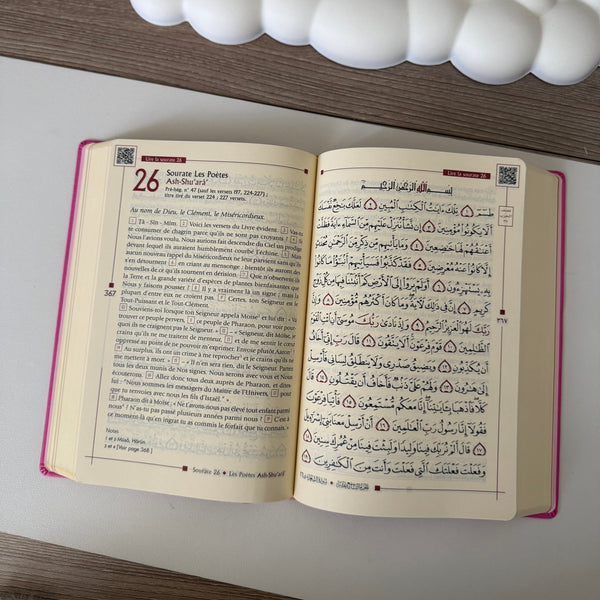 Lire la sourate 26
26
Sourate Les Poètes
Ash-Shu'arâ'
Pré-hég. n° 47 (sauf les versets 197, 224-227) ;
titre tiré du verset 224 ; 227 versets.
Au nom de Dieu, le Clément, le Miséricordieux.
1 Tâ - Sîn - Mîm. 2 Voici les versets du Livre évident. 3 Vas-tu
te consumer de chagrin parce qu'ils ne sont pas croyants ? 4 Si
Nous l'avions voulu, Nous aurions fait descendre du Ciel un prodige
devant lequel ils auraient humblement courbé l'échine. 5 Mais
aucun nouveau rappel du Miséricordieux ne leur parvient sans qu'ils
s'en détournent 6 en criant au mensonge : bientôt ils auront des
nouvelles de ce qu'ils tournent en dérision. 7 Que n'observent-ils
la Terre et la grande variété d'espèces de plantes bienfaisantes que
Nous y faisons pousser ? 8 Il y a vraiment là un signe ; mais la
plupart d'entre eux ne croient pas. 9 Certes, ton Seigneur est le
Tout-Puissant et le Tout-Clément.
10 Souviens-toi lorsque ton Seigneur appela Moïse : « Va
trouver ce peuple pervers, 11 ce peuple de Pharaon, pour voir pour-
quoi ils ne craignent pas le Seigneur. » 12 « Seigneur, dit Moïse, je
crains qu'ils ne me traitent de menteur, 13 et de me sentir le cœur
oppressé au point de ne pouvoir m'exprimer. Envoie plutôt Aaron
14 Au surplus, ils ont un crime à me reprocher et je crains qu'ils ne
me mettent à mort. » 15 « Il n'en sera rien, dit le Seigneur. Partez
tous les deux munis de Nos signes. Nous serons avec vous et Nous
écouterons. 16 Allez donc tous deux auprès de Pharaon, et dites-
lui : "Nous sommes les messagers du Maître de l'Univers, 17 pour
que tu renvoies avec nous les fils d'Israël." »
18 Pharaon dit à Moïse : « Ne t'avons-nous pas élevé tout enfant parmi
nous ? N'as-tu pas passé plusieurs années parmi nous ? 19 C'est à
ce moment-là qu'en ingrat tu as commis le forfait que tu connais. »
367
Notes
1 et 2 Mûsâ, Hârûn.
3 et 4 [Voir page 368.]
Sourate 26 • Les Poètes Ash-Shu'arâ'
Lire la sourate 26
بِسْمِ اللَّهِ الرَّحْمَٰنِ الرَّحِيمِ
طسٓمٓ ١ تِلْكَ ءَايَٰتُ ٱلْكِتَٰبِ ٱلْمُبِينِ ٢ لَعَلَّكَ بَٰخِعٌ نَّفْسَكَ
أَلَّا يَكُونُوا۟ مُؤْمِنِينَ ٣ إِن نَّشَأْ نُنَزِّلْ عَلَيْهِم مِّنَ ٱلسَّمَآءِ ءَايَةً فَظَلَّتْ
أَعْنَٰقُهُمْ لَهَا خَٰضِعِينَ ٤ وَمَا يَأْتِيهِم مِّن ذِكْرٍ مِّنَ ٱلرَّحْمَٰنِ مُحْدَثٍ
إِلَّا كَانُوا۟ عَنْهُ مُعْرِضِينَ ٥ فَقَدْ كَذَّبُوا۟ فَسَيَأْتِيهِمْ أَنۢبَٰٓؤُا۟ مَا كَانُوا۟
بِهِۦ يَسْتَهْزِءُونَ ٦ أَوَلَمْ يَرَوْا۟ إِلَى ٱلْأَرْضِ كَمْ أَنۢبَتْنَا فِيهَا مِن كُلِّ زَوْجٍ
كَرِيمٍ ٧ إِنَّ فِى ذَٰلِكَ لَءَايَةً وَمَا كَانَ أَكْثَرُهُم مُّؤْمِنِينَ ٨ وَإِنَّ
رَبَّكَ لَهُوَ ٱلْعَزِيزُ ٱلرَّحِيمُ ٩ وَإِذْ نَادَىٰ رَبُّكَ مُوسَىٰٓ أَنِ ٱئْتِ ٱلْقَوْمَ
ٱلظَّٰلِمِينَ ١٠ قَوْمَ فِرْعَوْنَ أَلَا يَتَّقُونَ ١١ قَالَ رَبِّ إِنِّىٓ أَخَافُ
أَن يُكَذِّبُونِ ١٢ وَيَضِيقُ صَدْرِى وَلَا يَنطَلِقُ لِسَانِى فَأَرْسِلْ
إِلَىٰ هَٰرُونَ ١٣ وَلَهُمْ عَلَىَّ ذَنۢبٌ فَأَخَافُ أَن يَقْتُلُونِ ١٤ قَالَ
كَلَّا فَٱذْهَبَا بِـَٔايَٰتِنَآ إِنَّا مَعَكُم مُّسْتَمِعُونَ ١٥ فَأْتِيَا فِرْعَوْنَ
فَقُولَآ إِنَّا رَسُولُ رَبِّ ٱلْعَٰلَمِينَ ١٦ أَنْ أَرْسِلْ مَعَنَا بَنِىٓ إِسْرَٰٓءِيلَ
١٧ قَالَ أَلَمْ نُرَبِّكَ فِينَا وَلِيدًا وَلَبِثْتَ فِينَا مِنْ عُمُرِكَ سِنِينَ ١٨
وَفَعَلْتَ فَعْلَتَكَ ٱلَّتِى فَعَلْتَ وَأَنتَ مِنَ ٱلْكَٰفِرِينَ ١٩
٣٦٧